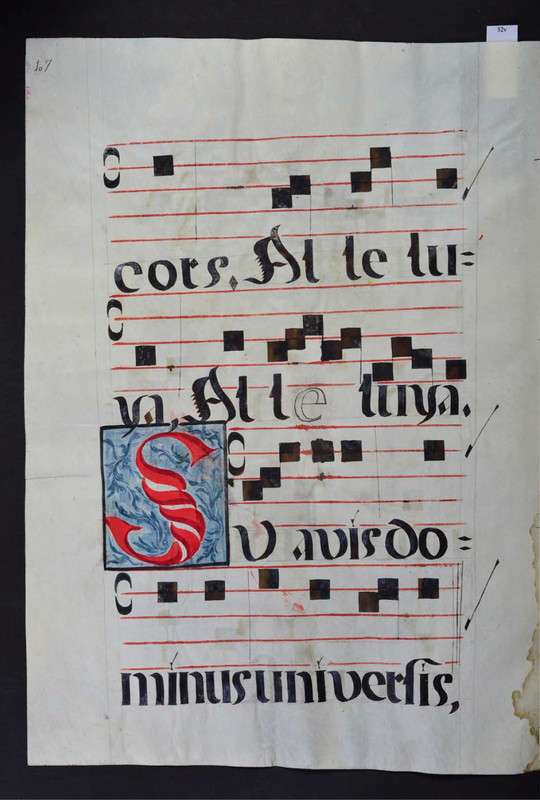 52v
107
cors. Al le lu=
ya, Al le luya.
SU avis do=
minus universis,